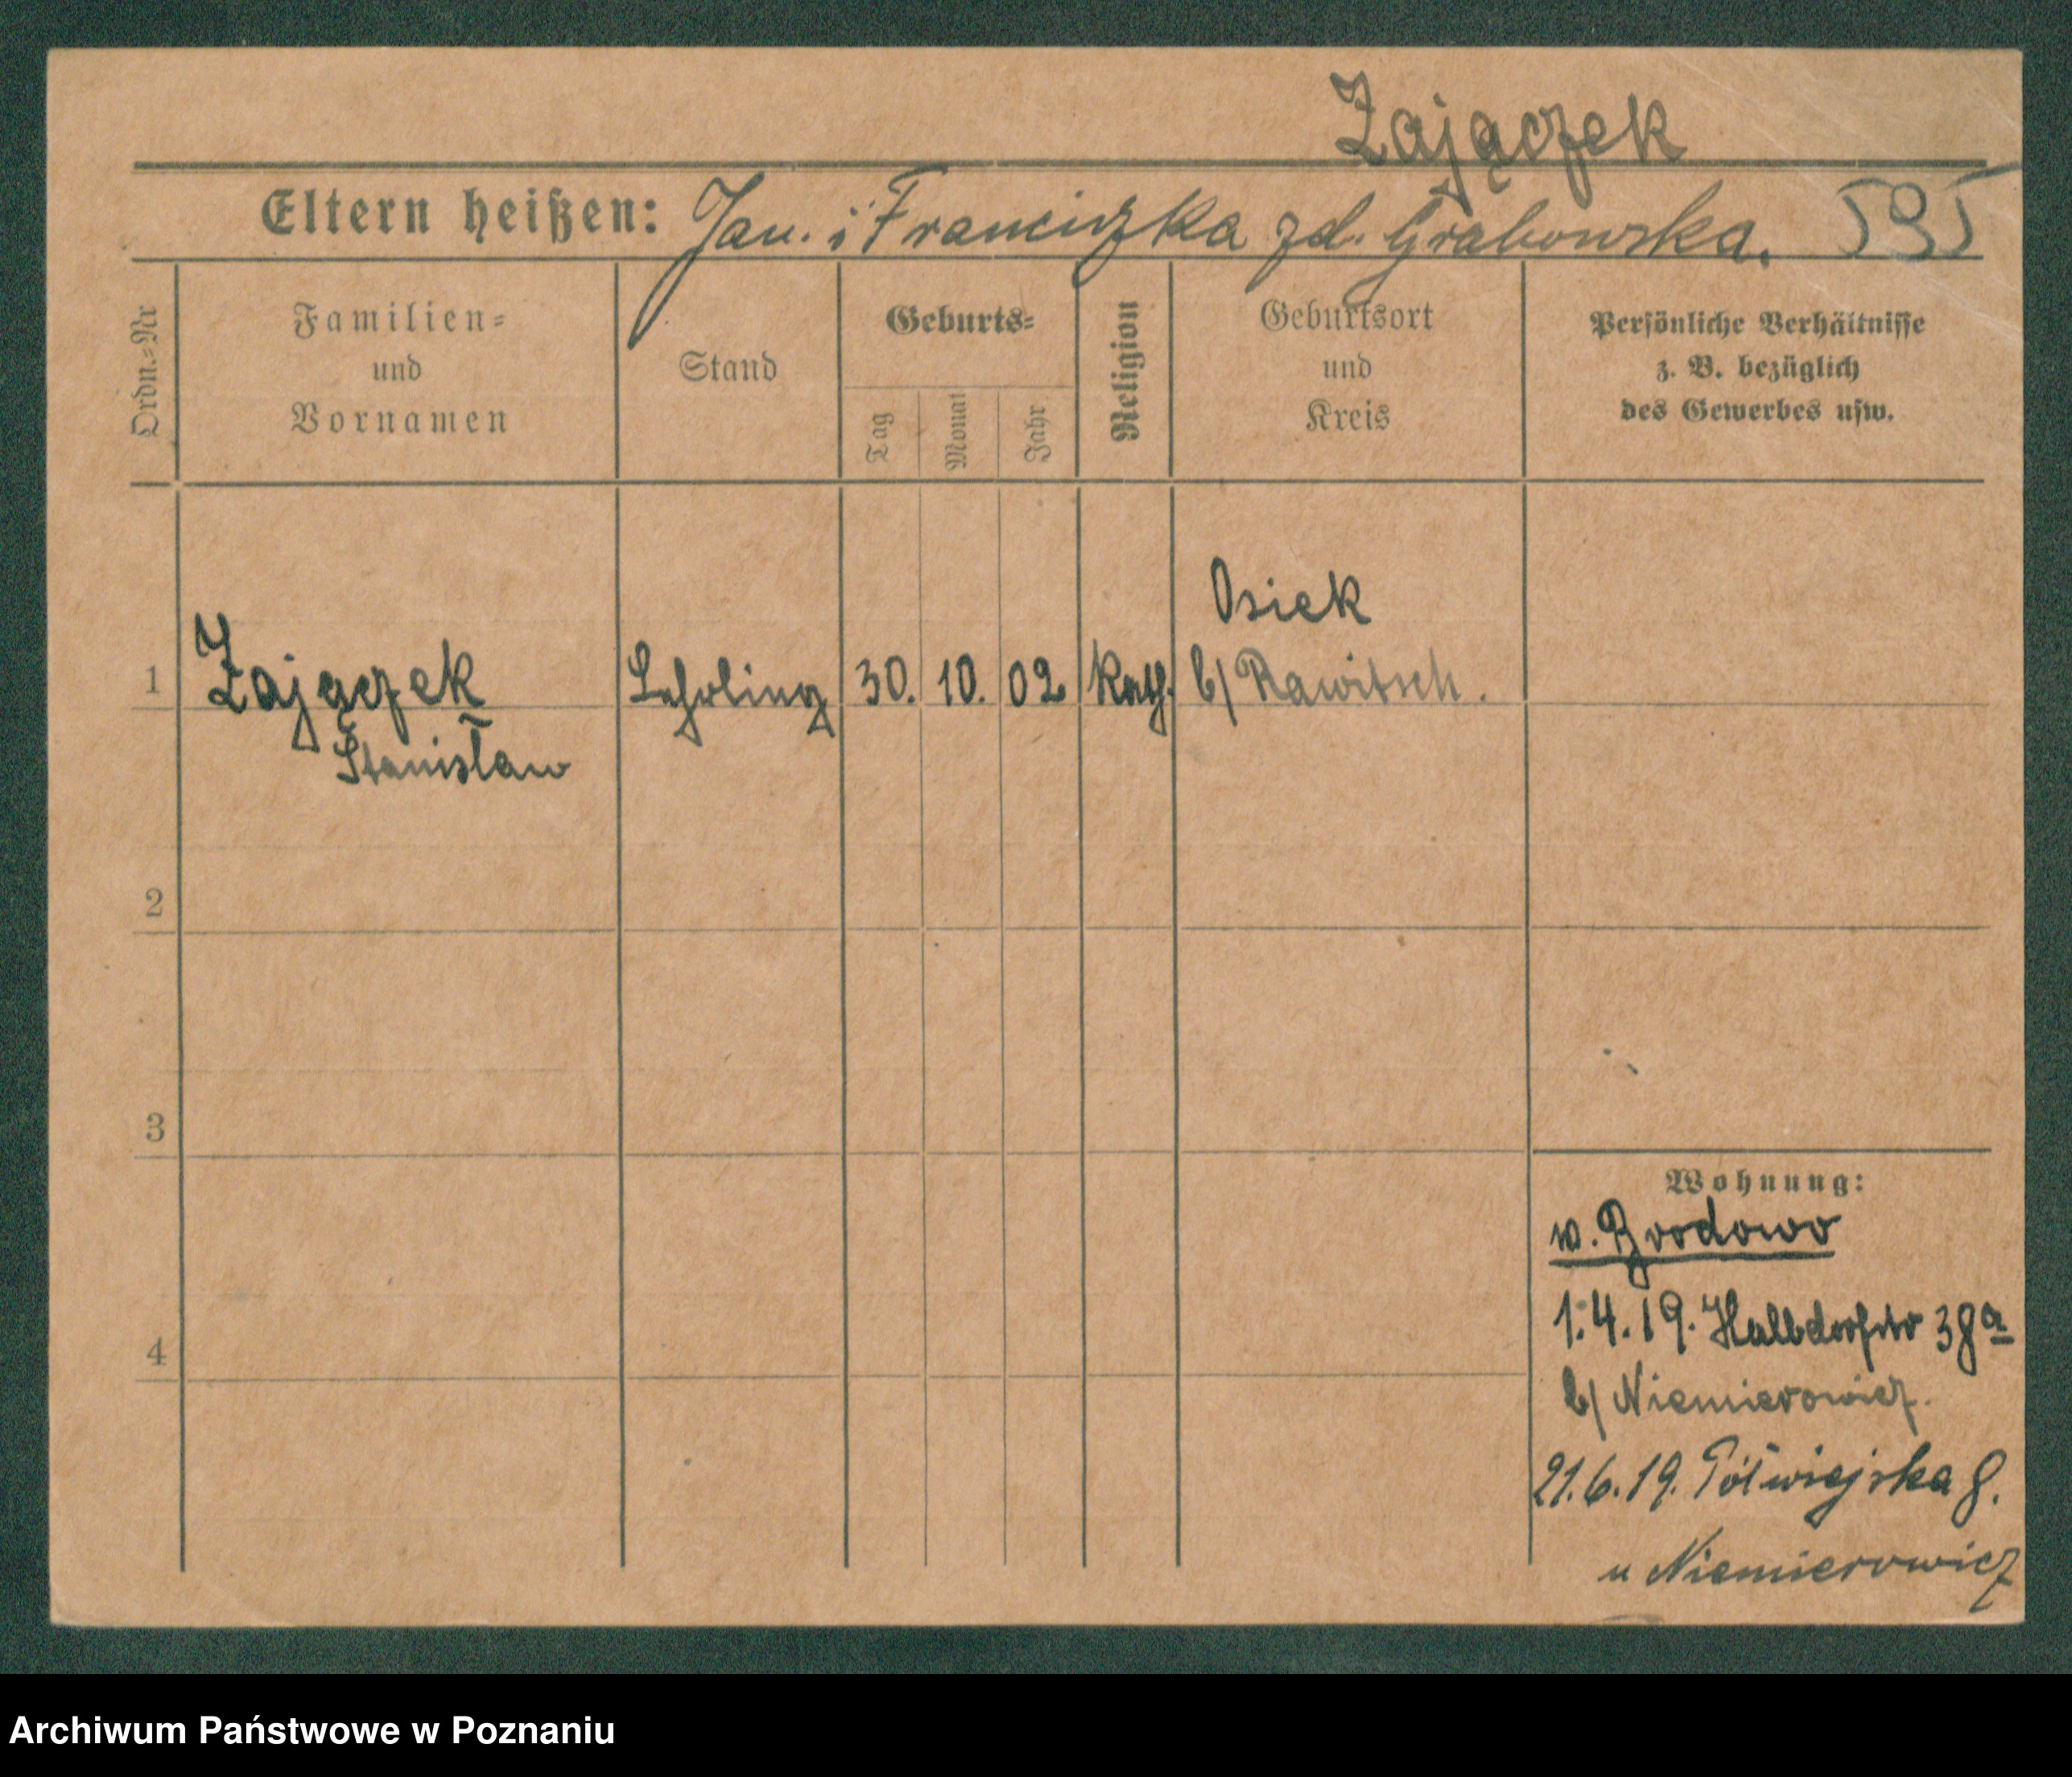 Zajączek
Eltern heißen: Jan. i Franciszka zd. Grabowska. 595
Ordn.=Nr
Familien=
und
Vornamen
Stand
Geburts=
Tag
Monat
Jahr
Religion
Geburtsort
und
Kreis
Persönliche Verhältnisse
z. B. bezüglich
des Gewerbes usw.
Osiek
1 Zajączek Lehrling 30. 10. 02 kath. b/ Rawitsch.
Stanisław
2
3
Wohnung:
w. Brodowo
1.4.19. Halbdorfstr 38a
4
b/ Niemierowicz.
21.6.19. Półwiejska 8.
u Niemierowicz
Archiwum Państwowe w Poznaniu